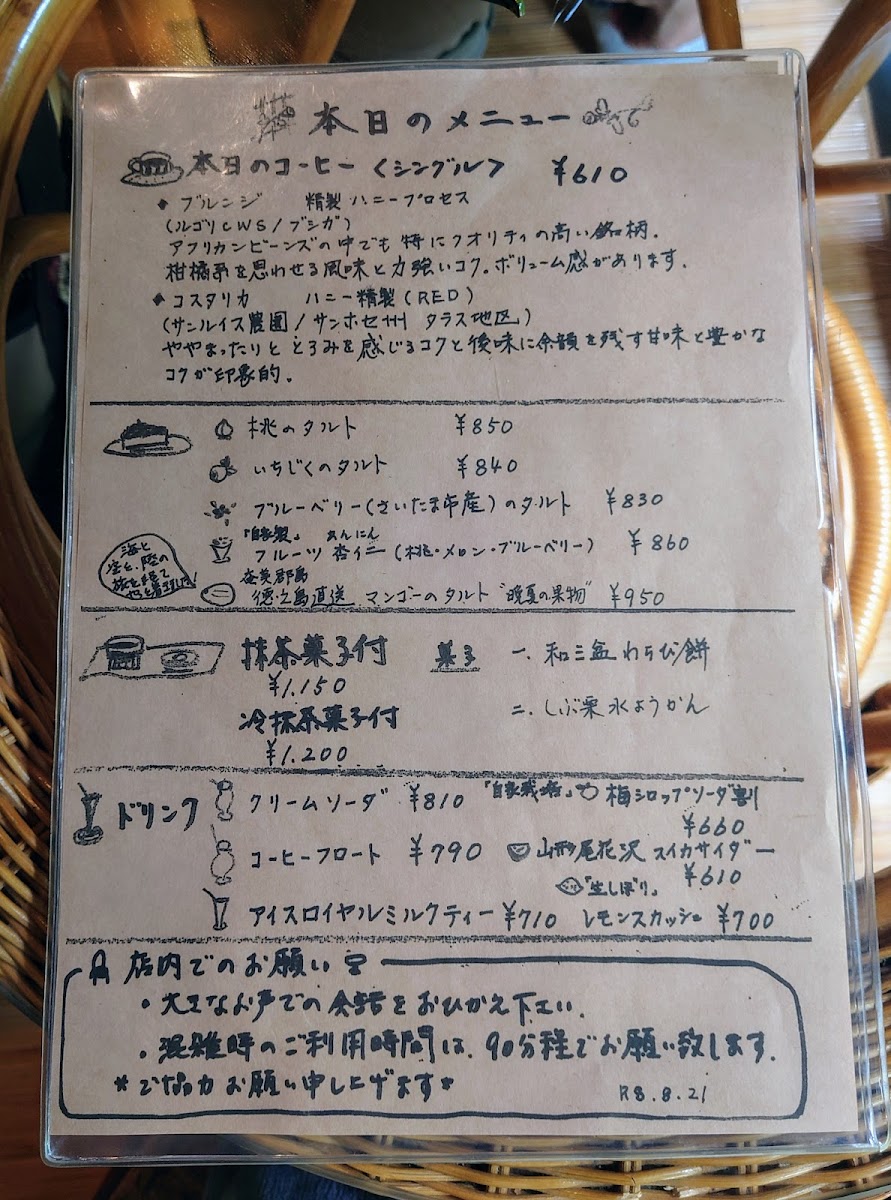 本日のメニュー
本日のコーヒー〈シングル〉 ¥610
◆ブルンジ 精製ハニープロセス
(ルゴリCWS/ブシガ)
アフリカンビーンズの中でも特にクオリティの高い銘柄.
柑橘系を思わせる風味と力強いコク。ボリューム感があります.
◆コスタリカ ハニー精製(RED)
(サンルイス農園/サンホセ州 タラス地区)
ややまったりと とろみを感じるコクと後味に余韻を残す甘味と豊かな
コクが印象的.
桃のタルト ¥850
いちじくのタルト ¥840
ブルーベリー(さいたま市産)のタルト ¥830
「自家製」 あんにん
フルーツ杏仁(桃・メロン・ブルーベリー) ¥860
海と
空と、陸の
旅を経て
奄美群島
徳之島直送 マンゴーのタルト "晩夏の果物" ¥950
抹茶菓子付 菓子 一.和三盆わらび餅
¥1.150
冷抹茶菓子付 二.しぶ栗水ようかん
¥1.200
ドリンク
クリームソーダ ¥810 「自家栽培」梅シロップソーダ割
¥660
コーヒーフロート ¥790 山形尾花沢 スイカサイダー
¥610
「生しぼり」
アイスロイヤルミルクティー ¥710 レモンスカッシュ ¥700
店内でのお願い
・大きなお声での会話をおひかえ下さい.
・混雑時のご利用時間は、90分程でお願い致します.
*ご協力お願い申し上げます*
R8.8.21